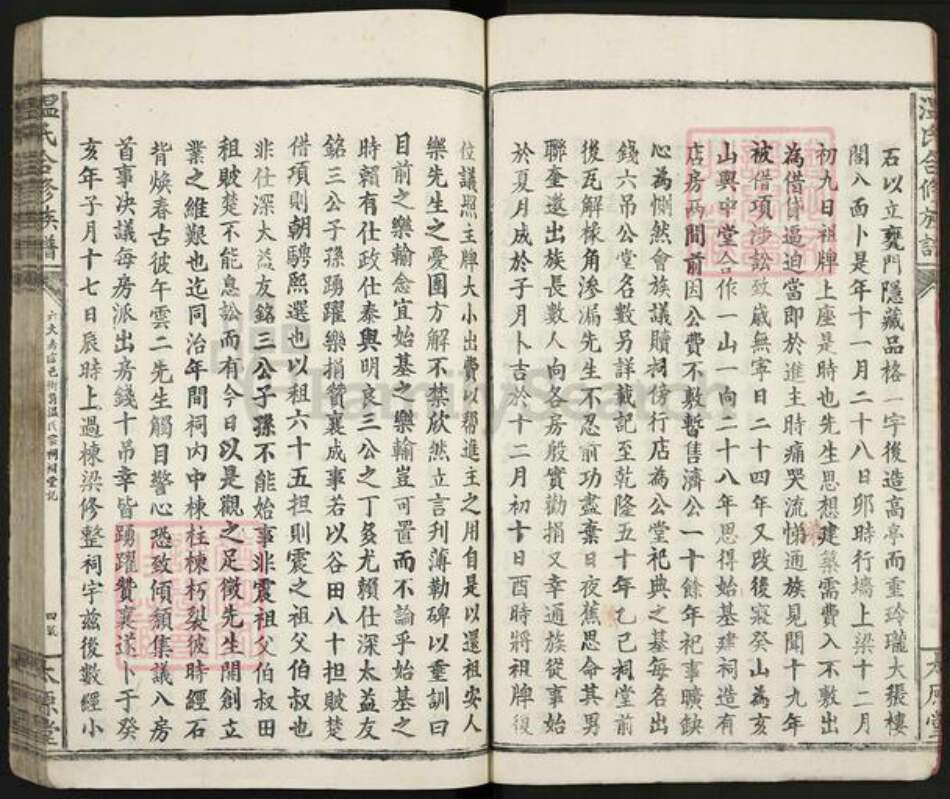 溫氏合修族譜
石以立甕門隱藏品格一字後造高亭而重玲瓏大張樓
閣八面卜是年十一月二十八日卯時行墻上梁十二月
初九日祖牌上座是時也先生思想建築需費入不敷出
為借貸逼迫當即於進主時痛哭流悌通族見聞十九年
被借項涉訟致歲無寧日二十四年又改後寢癸山為亥
山興中堂合作一山一向二十八年思得始基建祠造有
店房两間前因公費不敷暫售濟公一十餘年祀事曠缺
心為惻然會族議贖祠傍行店為公堂祀典之基每名出
錢六吊公堂名數另詳載記至乾隆五十年乙己祠堂前
後瓦解椽角滲漏先生不忍前功盡棄日夜蕉思命其男
聯奎邀出族長數人向各房殷實勸捐又幸通族從事始
於夏月成於子月卜吉於十二月初十日酉時將祖牌復
太原堂
位議照主牌大小出費以帮進主之用自是以還祖安人
樂先生之憂圊方解不禁欣然立言刋薄勒碑以重訓曰
目前之樂輸念宜始基之樂輸豈可置而不論乎始基之
時賴有仕政仕泰與明良三公之丁多尤賴仕深太益友
銘三公子孫踴躍樂捐贊襄成事若以谷田八十担賍楚
借項則朝騁熙選也以租六十五担則震之祖父伯叔也
非仕深大益友銘三公子孫不能始事非震祖父伯叔田
租賍楚不能息訟而有今日以是觀之足徵先生開創立
業之維艱也迄同治年間祠內中棟柱棟朽裂彼時經石
背煥春古彼午雲二先生觸目警心恐致傾頹集議八房
首事决議每房派出房錢十吊幸皆踴躍贊襄遂卜于癸
亥年子月十七日辰時上過棟梁修整祠宇茲後數經小
溫氏合修族譜
太原堂